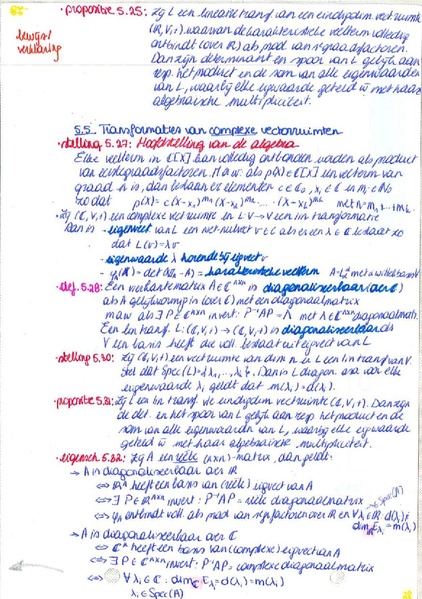 bewijs/
verklaring
• propositie 5.25: Zij L een lineaire transf van een eindigdim. vectruimte
(ℝ,V,+) waarvan de karakteristieke veelterm volledig
ontbindt (over ℝ) als prod van 1egraadsfactoren.
Dan zijn determinant en spoor van L gelijk aan
resp. het product en de som van alle eigenwaarden
van L, waarbij elke eigwaarde geteld w met haar
algebraïsche multipliciteit.
5.5 Transformaties van complexe vectorruimten
• stelling 5.27: Hoofdstelling van de algebra
Elke veelterm in ℂ[X] kan volledig ontbonden worden als product
van eerstegraadsfactoren. M.a.w. als p(X) ∈ ℂ[X] een veelterm van
graad n is, dan bestaan er elementen c ∈ ℂ₀, xᵢ ∈ ℂ en mᵢ ∈ ℕ₀
zo dat p(X) = c(X-x₁)^m₁ (X-x₂)^m₂ ... (X-x_k)^m_k met n = m₁+...+m_k
• Zij (ℂ,V,+) een complexe vectruimte en L: V→V een lin transformatie
Dan is - eigenvect van L een niet nulvect v ∈ V als er een λ ∈ ℂ bestaat zo
dat L(v) = λv
- eigenwaarde λ horende bij eigvect v
- det(XIₙ-A) = karakteristieke veelterm
• def. 5.28: Een vierkante matrix A ∈ ℂⁿˣⁿ is diagonaliseerbaar (over ℂ)
als A gelijkvormig is (over ℂ) met een diagonaalmatrix
maw als ∃ P ∈ ℂⁿˣⁿ invert: P⁻¹AP = Λ met Λ ∈ ℂⁿˣⁿ diagonaalmatr.
Een lin transf. L: (ℂ,V,+) → (ℂ,V,+) is diagonaliseerbaar als
V een basis heeft die voll. bestaat uit eigvect van L
• stelling 5.30: Zij (ℂ,V,+) een vectruimte van dim n en L een lin transf van V.
Stel dat Spec(L) = {λ₁,...,λ_k}. Dan is L diagon. asa voor elke
eigenwaarde λᵢ geldt dat m(λᵢ) = d(λᵢ).
• propositie 5.31: Zij L een lin transf. v/e eindigdim vectruimte (ℂ,V,+). Dan zijn
de det. en het spoor van L gelijk aan resp. het product en de
som van alle eigenwaarden van L, waarbij elke eigwaarde
geteld w met haar algebraïsche multipliciteit.
• eigensch 5.32: Zij A een reële (n×n)-matrix, dan geldt:
→ A is diagonaliseerbaar over ℝ
⇔ ℝⁿ heeft een basis van (reële) eigvect van A
⇔ ∃ P ∈ ℝⁿˣⁿ invert: P⁻¹AP = reële diagonaalmatrix
⇔ φ_A ontbindt voll. als prod van 1egr factoren over ℝ en ∀ λᵢ ∈ ℝ: d(λᵢ) =
→ A is diagonaliseerbaar over ℂ
⇔ ℂⁿ heeft een basis van (complexe) eigvect van A
⇔ ∃ P ∈ ℂⁿˣⁿ invert: P⁻¹AP = complexe diagonaalmatrix
⇔ ∀ λᵢ ∈ ℂ: dim_ℂ E_λᵢ = d(λᵢ) = m(λᵢ)
λᵢ ∈ Spec(A)